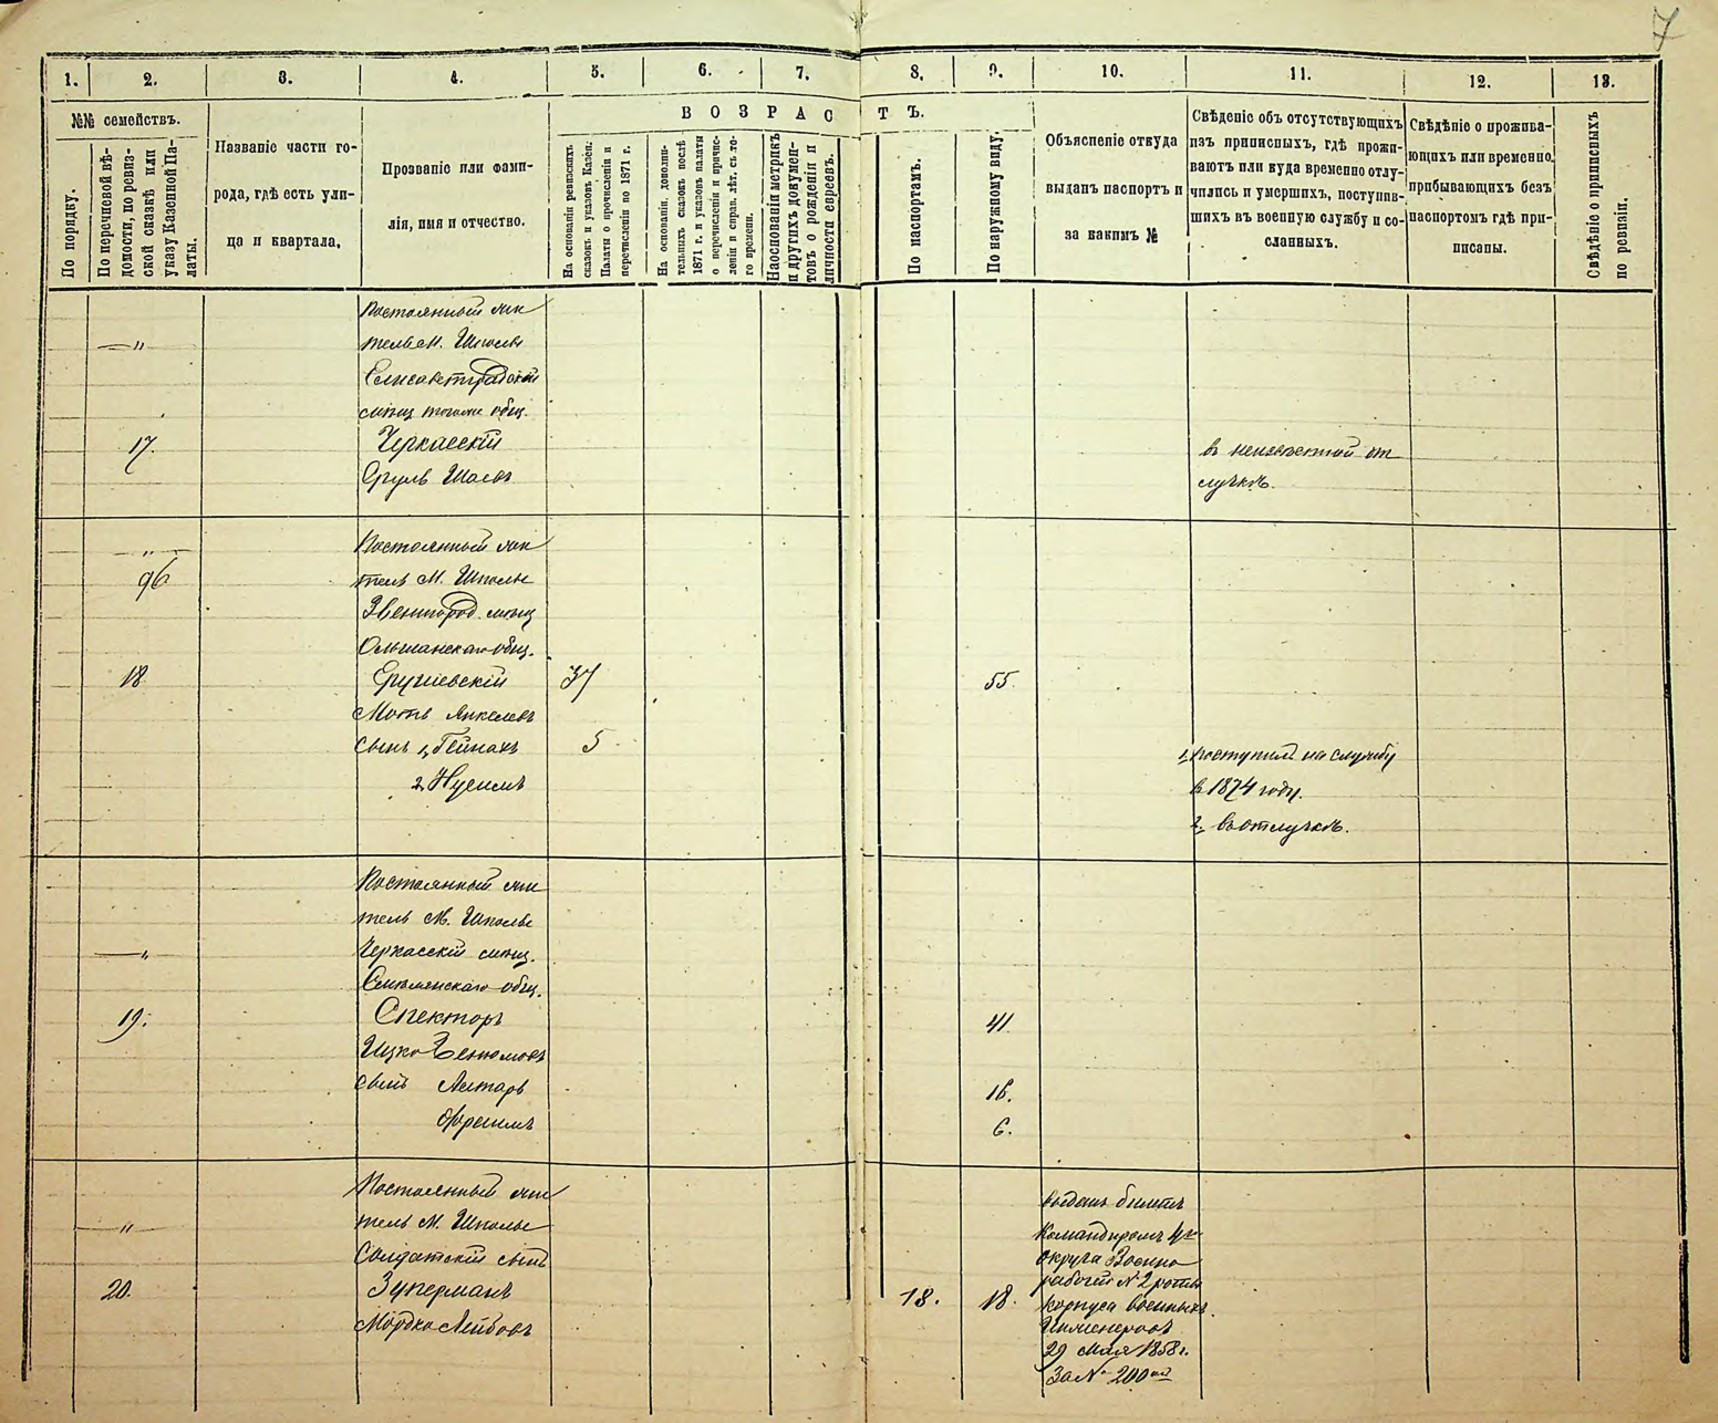 7
1. 2. 3. 4. 5. 6. 7. 8. 9. 10. 11. 12. 13.
№№ семействъ.
По порядку.
По перечневой вѣ-
домости, по ревиз-
ской сказкѣ или
указу Казенной Па-
латы.
Названіе части го-
рода, гдѣ есть ули-
ца и квартала.
Прозваніе или фами-
лія, имя и отчество.
ВОЗРАСТЪ.
На основаніи ревизскихъ
сказокъ и указовъ Казен.
Палаты о причисленіи и
перечисленіи по 1871 г.
На основаніи дополни-
тельныхъ сказокъ послѣ
1871 г. и указовъ палаты
о перечисленіи и причис-
леніи и справ. лѣт. съ то-
го времени.
На основаніи метрикъ
и другихъ докумен-
товъ о рожденіи и
личности евреевъ.
По паспортамъ.
По наружному виду.
Объясненіе откуда
выданъ паспортъ и
за какимъ №
Свѣденіе объ отсутствующихъ
изъ приписныхъ, гдѣ прожи-
ваютъ или куда временно отлу-
чились и умершихъ, поступив-
шихъ въ военную службу и со-
сланныхъ.
Свѣдѣніе о прожива-
ющихъ или временно
прибывающихъ безъ
паспортомъ гдѣ при-
писаны.
Свѣдѣніе о приписныхъ
по ревизіи.
Постоянный жи
— "
тель М. Шполы
Елисаветградскій
мѣщ тогоже общ.
17. Черкасскій
въ неизвѣстной от
Сруль Шаевъ
лучкѣ.
— " — Постоянный жи
96 тель М. Шполы
Звенигород. мѣщ
Ольшанскаго общ.
18 37 55.
Мотъ Янкелевъ
сынъ 1, Гейнахъ 5
1, поступилъ на службу
2, Нусимъ
въ 1874 году.
2. въ отлучкѣ.
Постоянный жи
тель М. Шполы
— " Черкасскій мѣщ.
Смѣлянскаго общ.
19. Спекторъ 41.
Ицко
сынъ 16.
Фроимъ 6.
Постоянный жи
выданъ билетъ
— " — тель М. Шполы
Командиромъ 4го
Солдатскій сынъ
округа Военно
рабочей № 2 роты
20. Зуперманъ 18. 18.
корпуса военныхъ
Мордко Лейбовъ
Инженеровъ
29 Мая 1858 г.
За № 200